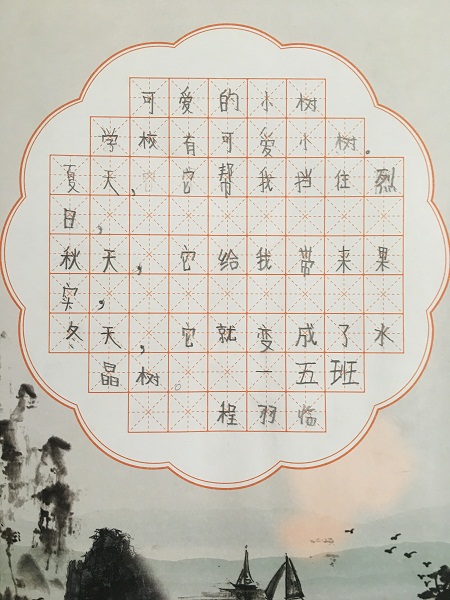 可爱的小树
学校有可爱小树。
夏天，它帮我挡住烈
日，
秋天，它给我带来果
实，
冬天，它就变成了水
晶树。一五班
程羽临